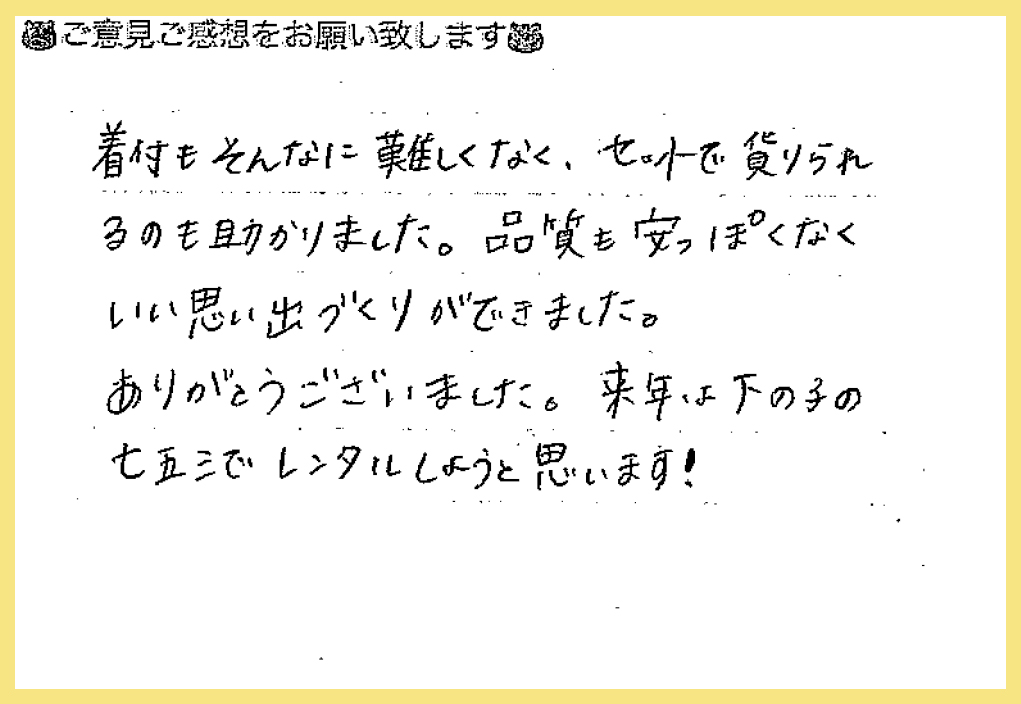 ご意見ご感想をお願い致します
着付もそんなに難しくなく、セットで貸りられ
るのも助かりました。品質も安っぽくなく
いい思い出づくりができました。
ありがとうございました。来年は下の子の
七五三でレンタルしようと思います!